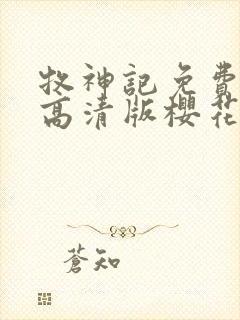 牧神記免費
高清版櫻花
蒼知